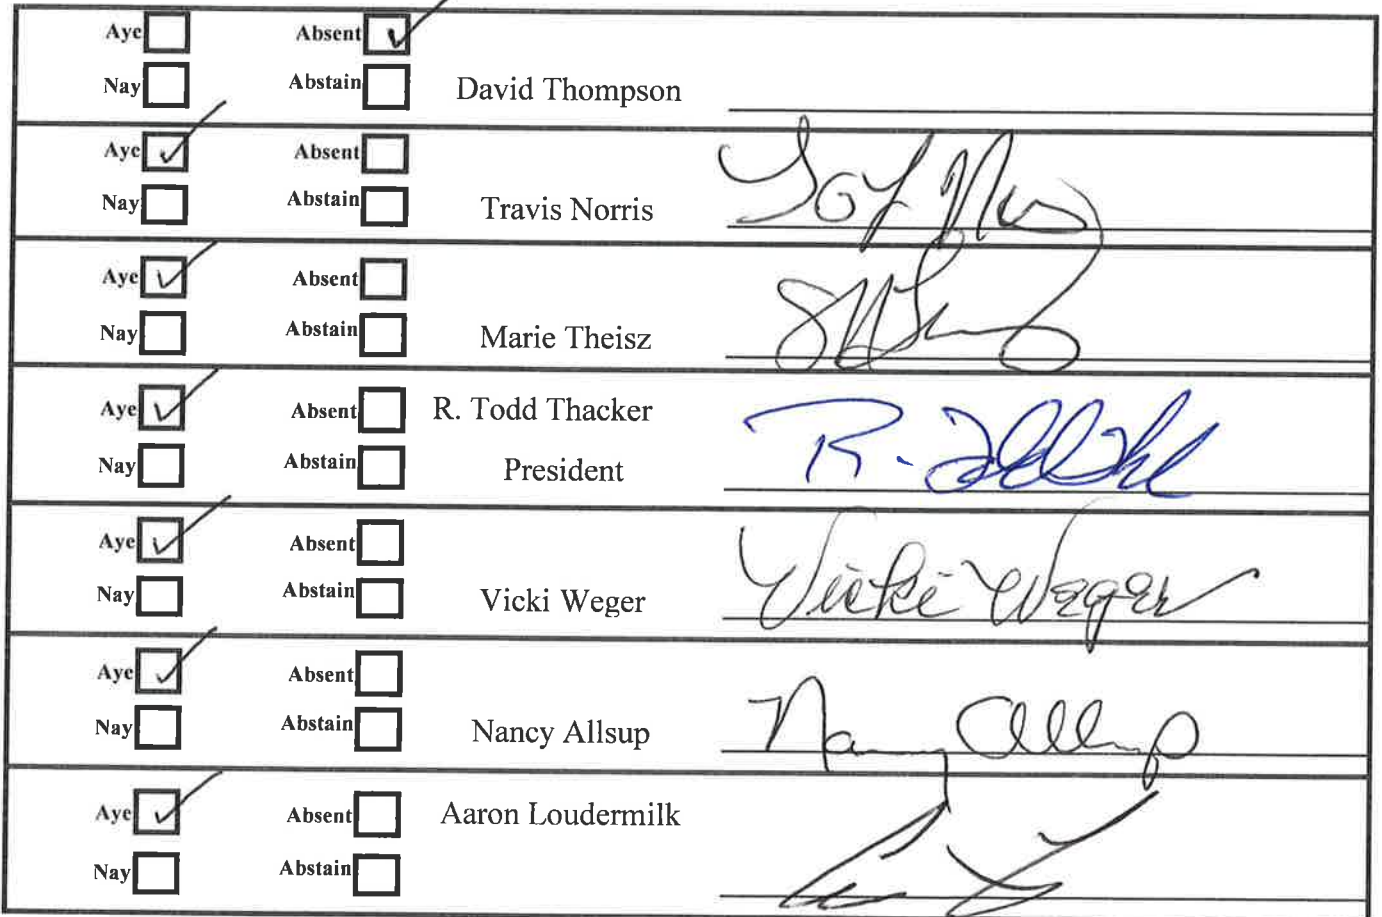 Aye Absent
Nay Abstain David Thompson
Aye Absent
Nay Abstain Travis Norris
Aye Absent
Nay Abstain Marie Theisz
Aye Absent R. Todd Thacker
Nay Abstain President
Aye Absent
Nay Abstain Vicki Weger Vicki Weger
Aye Absent
Nay Abstain Nancy Allsup Nancy Allsup
Aye Absent Aaron Loudermilk
Nay Abstain